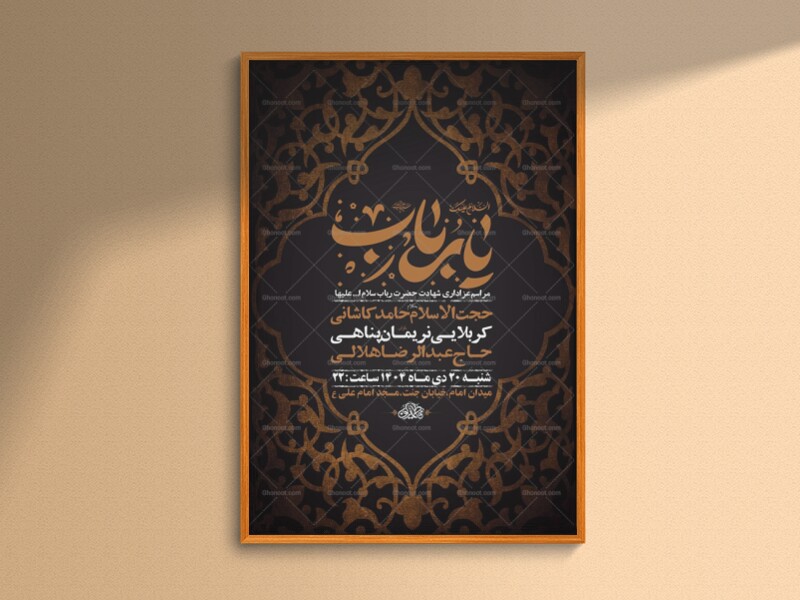 السلام علیک
یا رباب
مراسم عزاداری شهادت حضرت رباب سلام ا... علیها
حجت الاسلام حامد کاشانی
کربلایی نریمان پناهی
حاج عبدالرضا هلالی
شنبه ۲۰ دی ماه ۱۴۰۴ ساعت: ۲۲
میدان امام، خیابان جنت، مسجد امام علی ع
Ghonoot.com